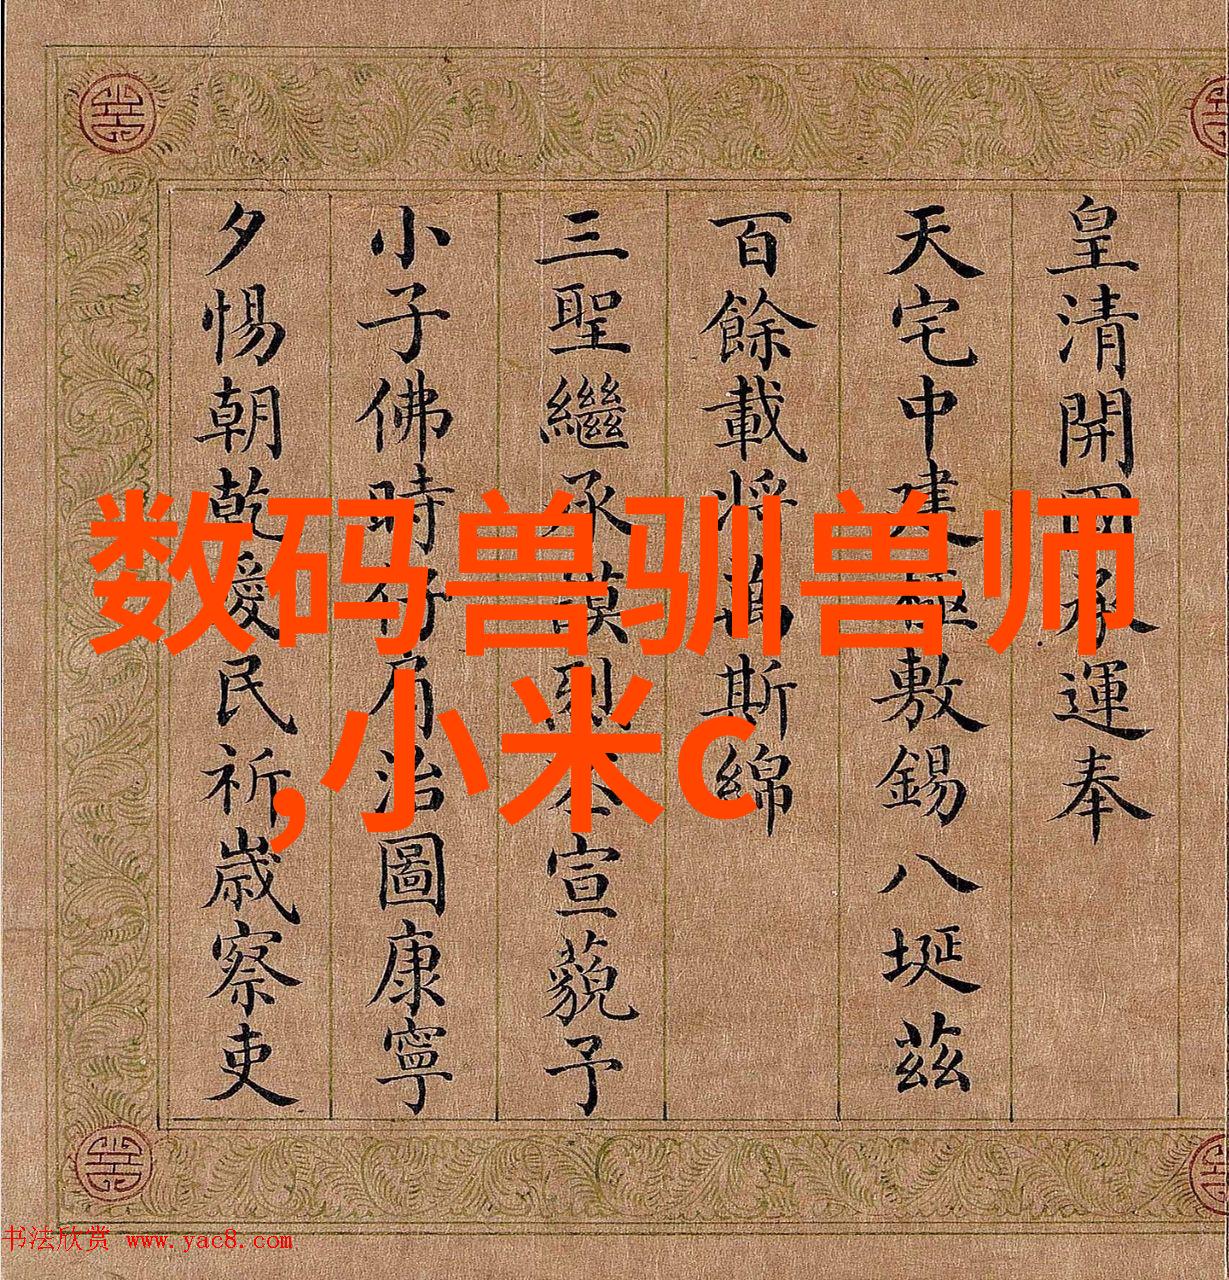 皇清開國承運奉
天宅中建極敷錫八埏茲
百餘載將萬斯綿
三聖繼承謨烈宣藐予
小子佛時仔肩治圖康寧
夕惕朝乾愛民祈歲察吏
数码兽驯兽师
,小米c
书法欣赏 www.yac8.com